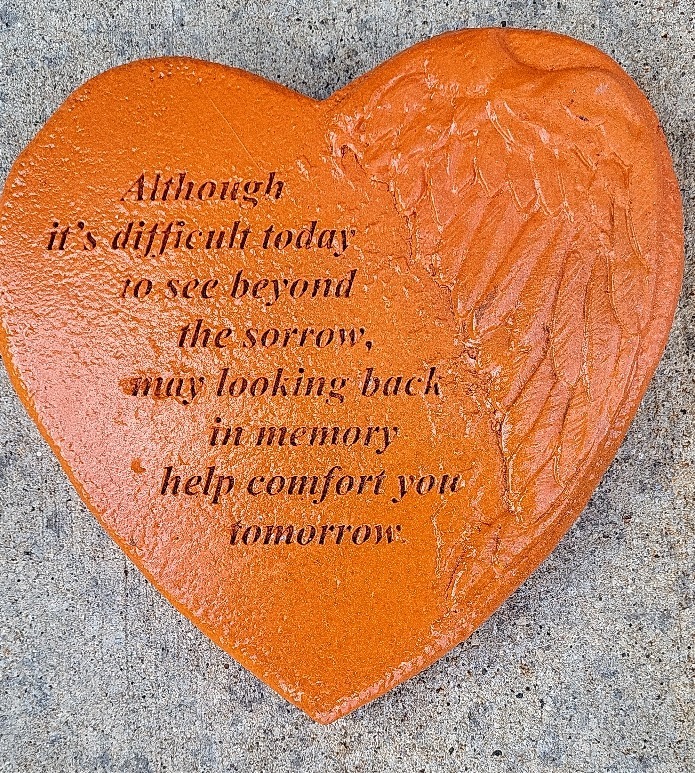 Although
it's difficult today
to see beyond
the sorrow,
may looking back
in memory
help comfort you
tomorrow.